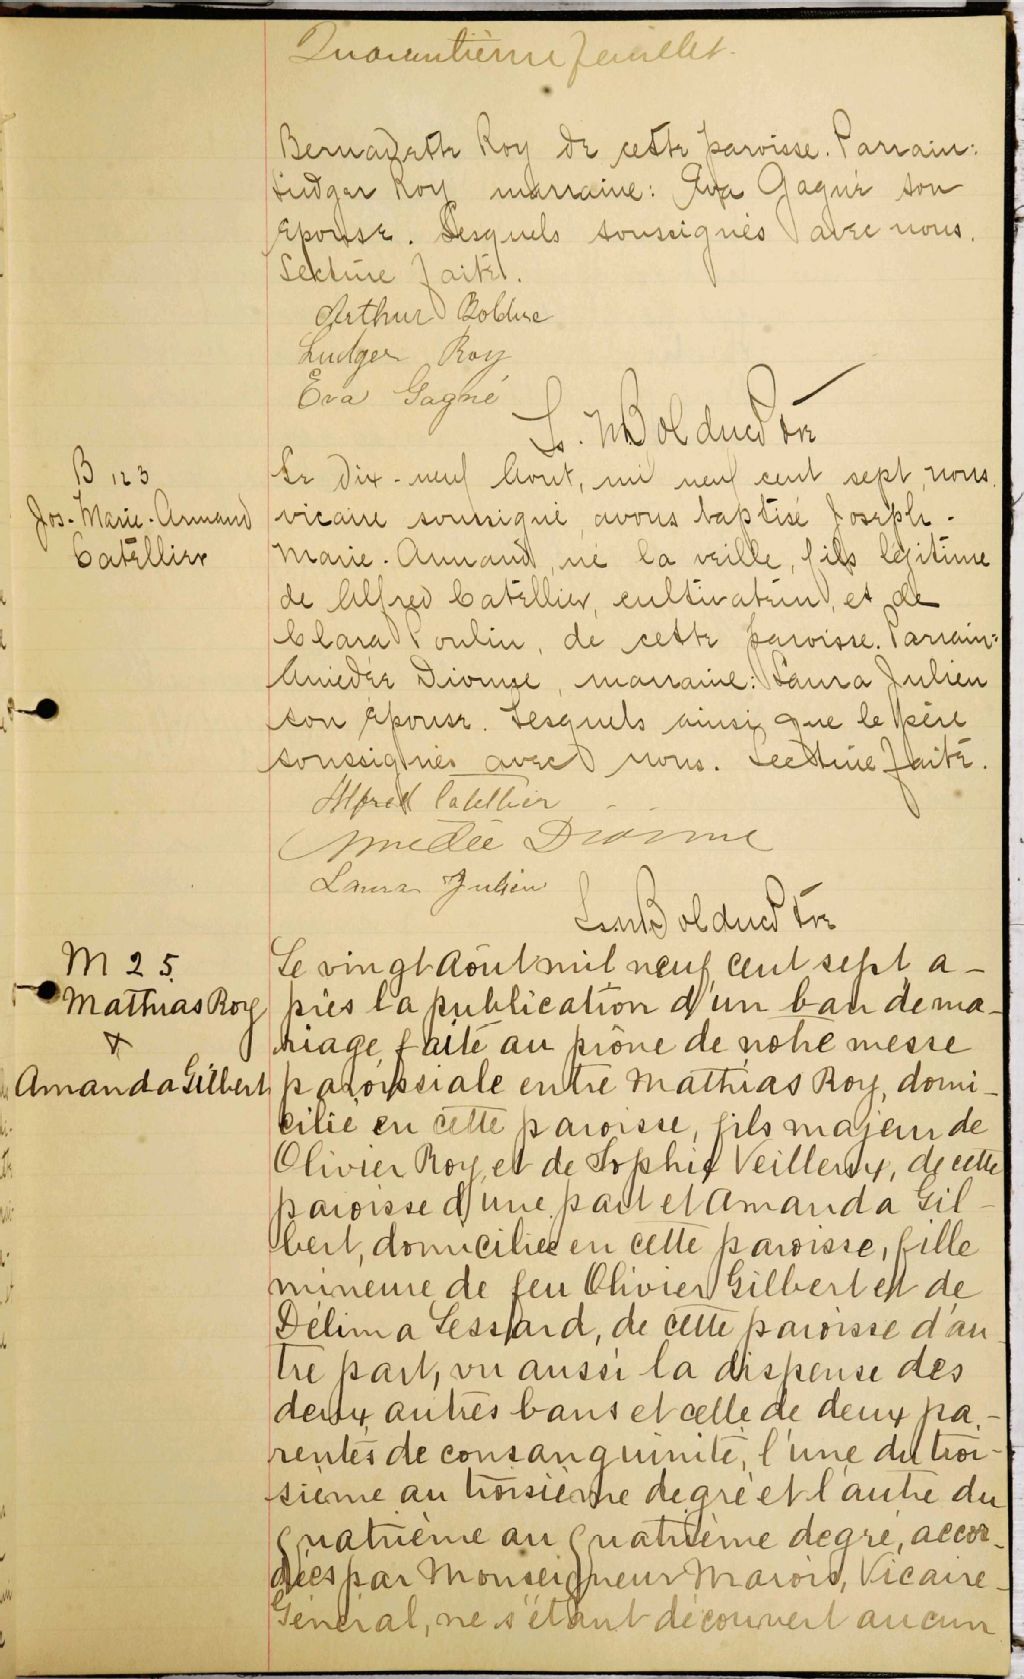 Quarantième feuillet.
Bernadette Roy de cette paroisse. Parrain:
Ludger Roy marraine: Eva Gagné son
épouse. Lesquels soussignés avec nous.
Lecture faite.
Arthur Bolduc
Ludger Roy
Eva Gagné
Ls. N Bolduc Ptre
B 123
Jos-Marie-Armand
Catellier
Le dix-neuf Aout, mil neuf cent sept, nous
vicaire soussigné avons baptisé Joseph-
Marie-Armand, né la veille, fils légitime
de Alfred Catellier, cultivateur, et de
Clara Poulin, de cette paroisse. Parrain:
Amédée Dionne, marraine: Laura Julien
son épouse. Lesquels ainsi que le père
soussignés avec nous. Lecture faite.
Alfred Catellier
Amedée Dionne
Laura Julien
Ls. N Bolduc Ptre
M 25
Mathias Roy
&
Amanda Gilbert
Le vingt Août mil neuf cent sept a-
près la publication d'un ban de ma-
riage faite au prône de notre messe
paroissiale entre Mathias Roy, domi-
cilié en cette paroisse, fils majeur de
Olivier Roy, et de Sophie Veilleux, de cette
paroisse d'une part et Amanda Gil-
bert, domiciliée en cette paroisse, fille
mineure de feu Olivier Gilbert et de
Délima Lessard, de cette paroisse d'au-
tre part, vu aussi la dispense des
deux autres bans et celle de deux pa-
rentés de consanguinité, l'une du troi-
sième au troisième degré et l'autre du
quatrième au quatrième degré, accor-
dées par Monseigneur Marois, Vicaire-
Général, ne s'étant découvert aucun